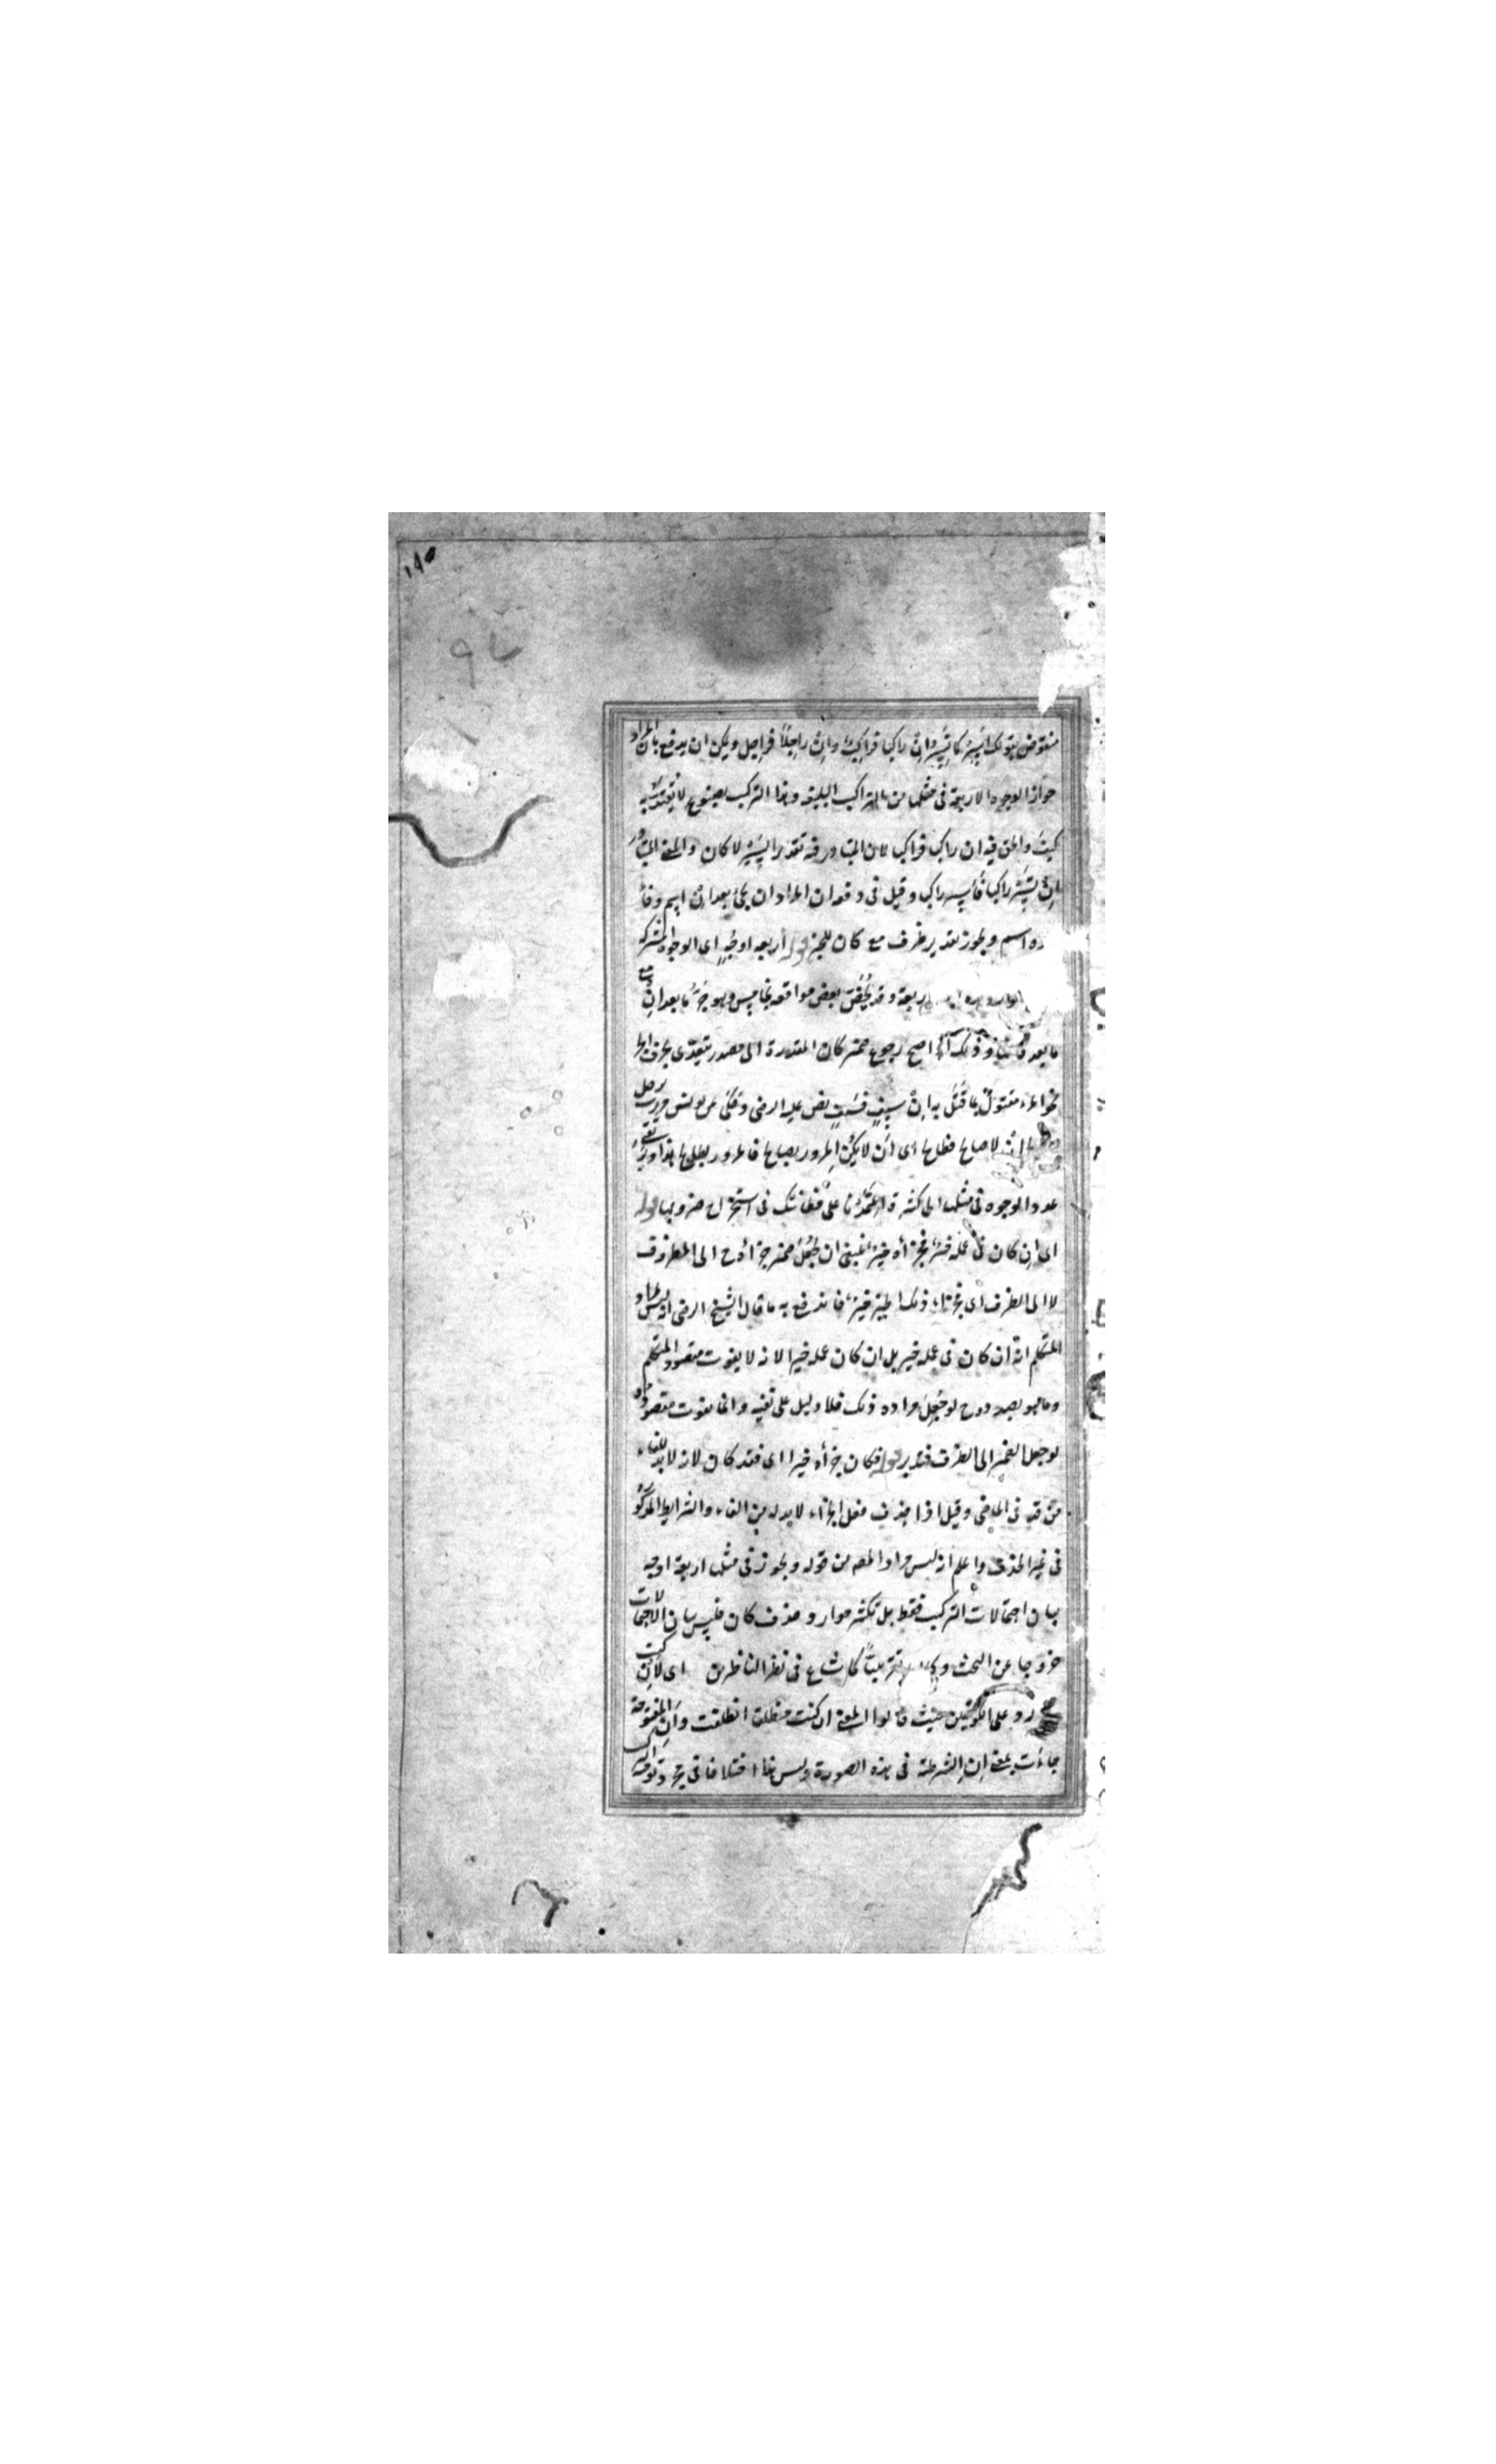 ١٨٥
٩٧
منقوض بقولك اسير كما تسير ان راكبا فراكب وان راجلا فراجل ويمكن ان يدفع بان المراد
جواز الوجوه الاربعة فى مثلها من التراكيب البليغة وهذا التركيب مصنوع لا يعتد به
كيف والحق فيه ان راكب فراكب لان المتبادر فيه تقدير اسير لا كان والمعنى
ان تسير راكبا فاسير راكبا وقيل فى دفعه ان المراد ان يجئ بعد ان اسم وفاء
اسم ويجوز تقدير ظرف مع كان للخبر قوله اربعة اوجه اى الوجوه المشتركة
اربعة وقد يختص بعض مواقعه بخامس وهو جر ما بعد ان مع
ما بعد فائها وذلك اذا صح رجوع ضمير كان المقدرة الى مصدر يتعدى بحرف الجر
نحو المرء مقتول بما قتل به ان سيف فسيف نص عليه الرضى وحكى عن يونس مررت برجل
ان لا صالح فطالح اى ان لا يكن المرور بصالح فالمرور بطالح هذا
عدد الوجوه فى مثلها الى كثرة على فطانتك فى استخراج ضروبها قوله
اى ان كان فى عمله خير فجزاؤه خير ينبغى ان يجعل ضمير جزاؤه الى المظروف
لا الى الظرف اى فجزاء ذلك الخير خير فاندفع به ما قال الشيخ الرضى انه ليس مراد
المتكلم انه ان كان فى عمله خير بل ان كان عمله خيرا لانه لا يفوت مقصود المتكلم
وما هو بصدده لو جعل مراده ذلك فلا دليل على نفيه وانما يفوت مقصوده
لو جعل الضمير الى الظرف فتدبر قوله فكان جزاؤه خيرا اى فقد كان لانه لا بد للفاء
من قد فى الماضى وقيل اذا حذف فعل الجزاء لا بد له من الفاء والشرايط المذكورة
فى غير الحذف واعلم انه ليس مراد المصه من قوله ويجوز فى مثلها اربعة اوجه
بيان احتمالات التركيب فقط بل تكثير موارد حذف كان فليس بيان الاحتمالات
خروجا عن البحث كما شاع فى نظر الناظرين اى لان كنت
رد على الكوفيين حيث قالوا المعنى ان كنت منطلقا انطلقت وان المفتوحة
جاءت بمعنى ان الشرطية فى هذه الصورة وليس هذا اختلافا فى